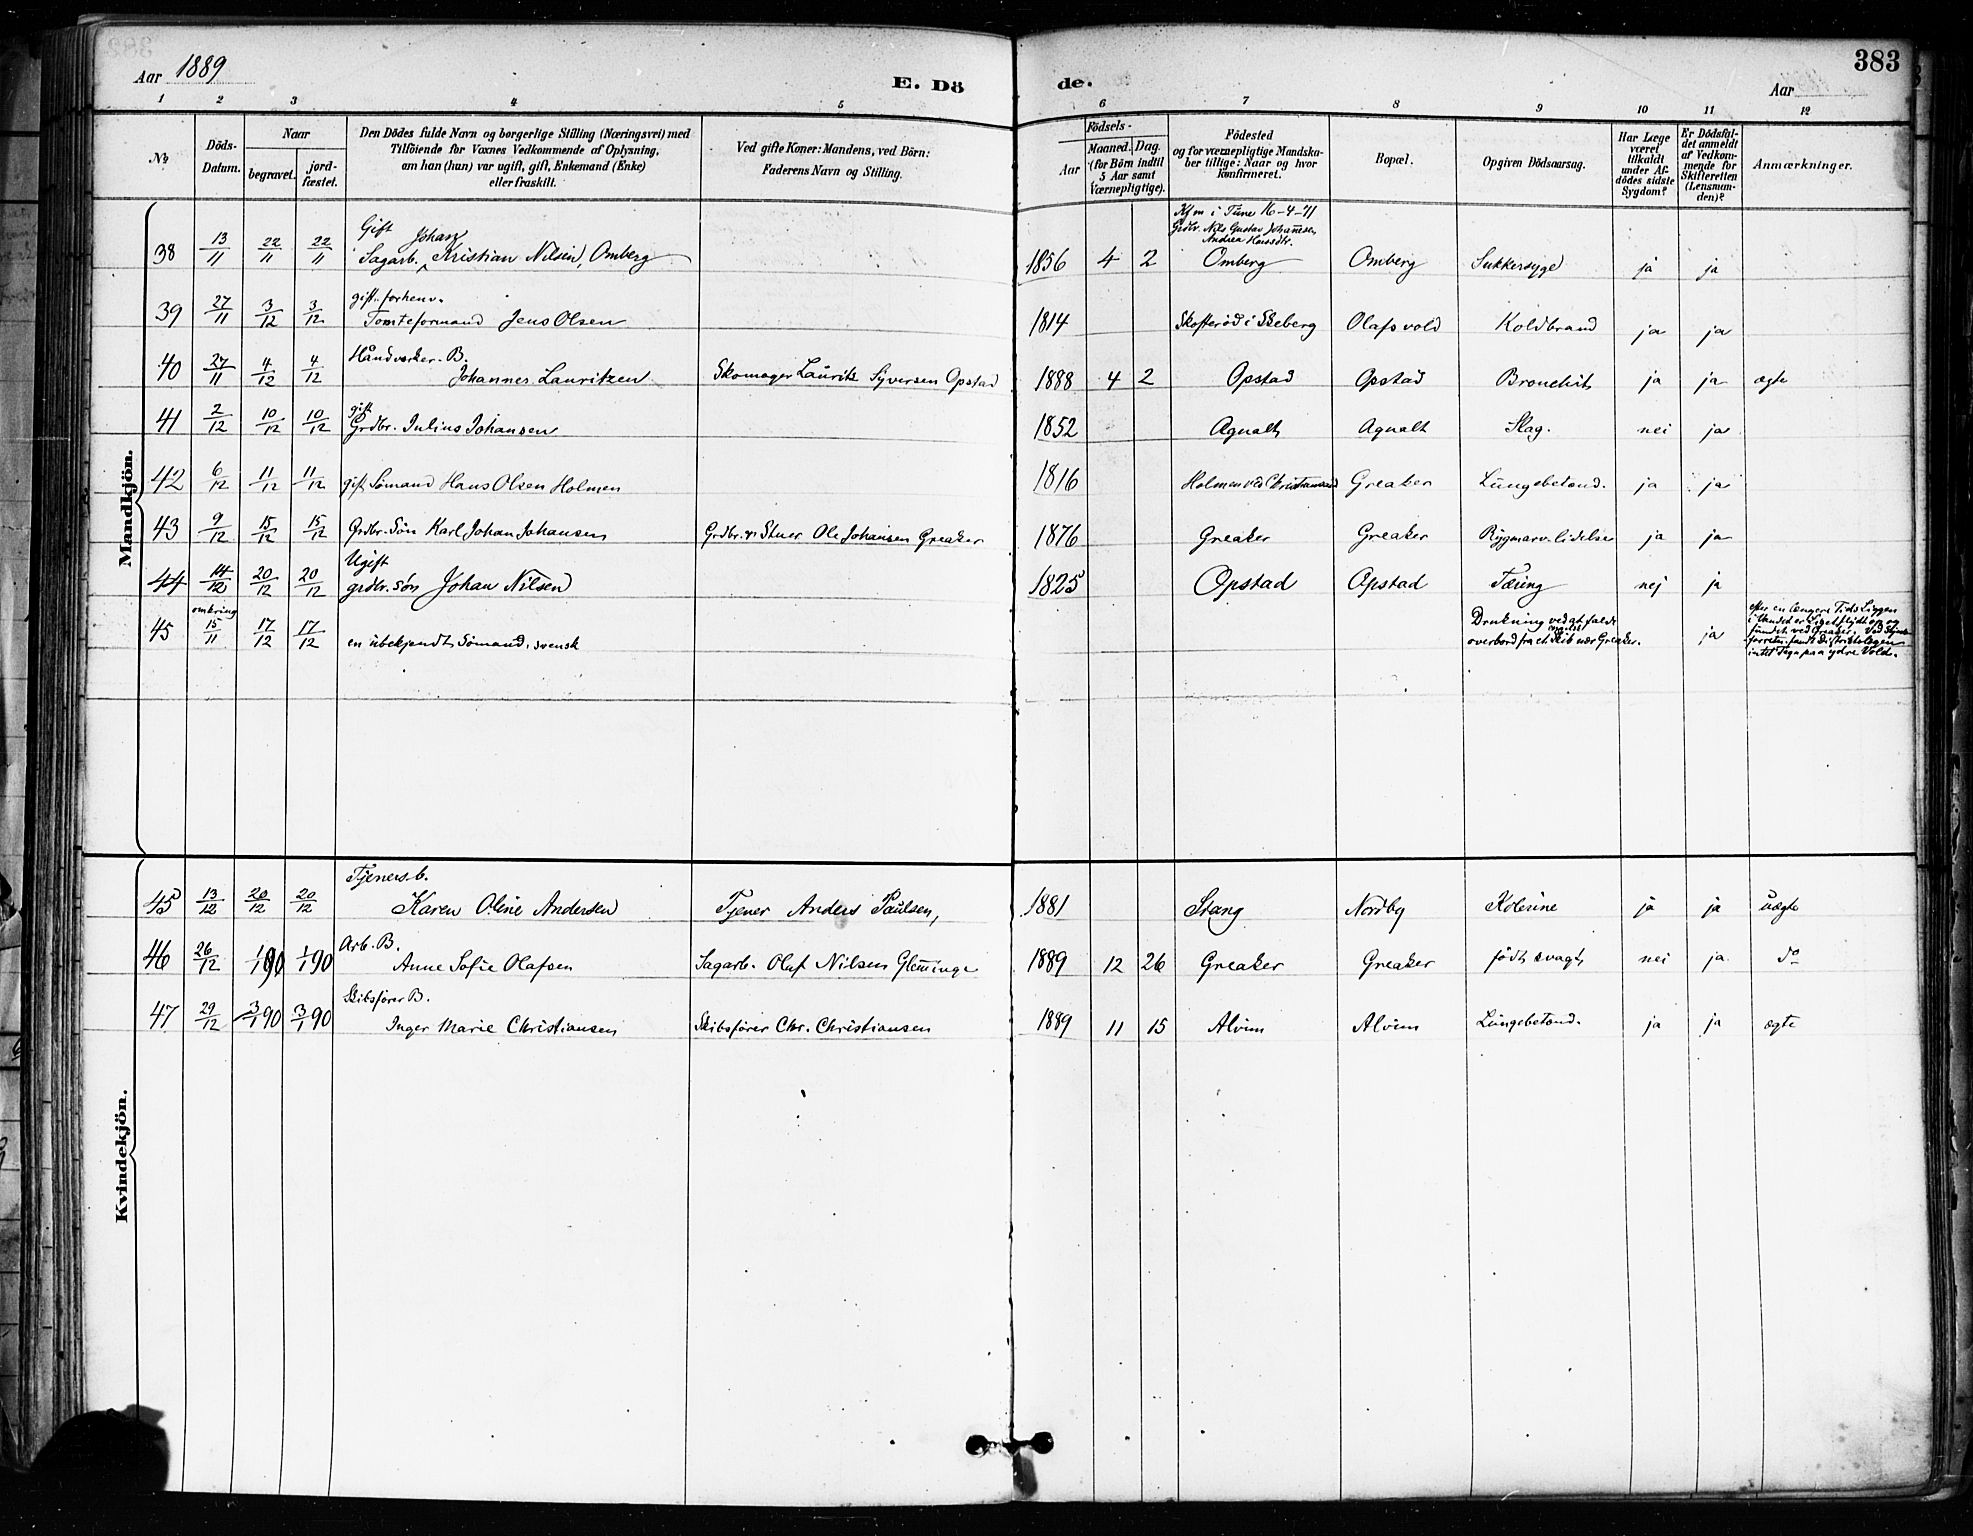 383
Aar 1889
E. Dö
de.
Aar
1 2 3 4 5 6 7 8 9 10 11 12
No
Döds-
Datum.
Naar
begravet.
jord-
fæstet.
Den Dödes fulde Navn og borgerlige Stilling (Næringsvei) med
Tilföiende for Voxnes Vedkommende af Oplysning,
om han (hun) var ugift, gift, Enkemand (Enke)
eller fraskilt.
Ved gifte Koner: Mandens, ved Börn:
Faderens Navn og Stilling.
Födsels-
Aar
Maaned. Dag.
(for Börn indtil
5 Aar samt
Værnepligtige).
Födested
og for værnepligtige Mandska-
ber tillige: Naar og hvor
konfirmeret.
Bopæl.
Opgiven Dödsaarsag.
Har Læge
været
tilkaldt
under Af-
dödes sidste
Sygdom?
Er Dödsfal-
det anmeldt
af Vedkom-
mende for
Skifteretten
(Lensman-
den)?
Anmærkninger.
Mandkjön.
Gift Johan Kfm i Tune 16-4-71
Grdbr. Nils Gustav Johannesen
Andrea Hansdtr.
38 13/11 22/11 22/11 Sagarb. Kristian Nilsen, Omberg 1856 4 2 Omberg Omberg Sukkersyge ja ja
gift. forhenv.
39 27/11 3/12 3/12 Tomteformand Jens Olsen 1814 Skofterød i Skeberg Olafsvold Koldbrand ja ja
Håndværker. B.
40 27/11 4/12 4/12 Johannes Lauritzen Skomager Lauritz Syversen Opstad 1888 4 2 Opstad Opstad Bronchit ja ja ægte
gift
41 2/12 10/12 10/12 Grdbr. Julius Johansen 1852 Agnalt Agnalt Slag. nei ja
42 6/12 11/12 11/12 gift Sömand Hans Olsen Holmen 1816 Holmen ved Christiansand Greaker Lungebetænd. ja ja
43 9/12 15/12 15/12 Grdbr. Sön Karl Johan Johansen Grdbr. Ole Johansen Greaker 1876 Greaker Greaker Rygmarv. lidelse ja ja
Ugift
44 14/12 20/12 20/12 grdbr. sön Johan Nilsen 1825 Opstad Opstad Tæring nej ja
omkring
45 15/11 17/12 17/12 en ubekjendt Sömand, svensk
Drukning ved at falde
overbord fra et Skib nær Greaker.
ja
efter en længere Tids Liggen
i Vandet er Liget flydt op og
fundet ved Greaker. Ved
fandt Distriktslægen
intet Tegn paa ydre Vold.
Kvindekjön.
Tjeners b.
45 13/12 20/12 20/12 Karen Oline Andersen Tjener Anders Paulsen, 1881 Stang Nordby Kolerine ja ja uægte
Arb. B.
46 26/12 1/1 90 1/1 90 Anne Sofie Olafsen Sagarb. Olaf Nilsen Glemminge 1889 12 26 Greaker Greaker födt svagt nei ja do
Skibsförer B.
47 29/12 3/1 90 3/1 90 Inger Marie Christiansen Skibsförer Chr. Christiansen 1889 11 15 Alvim Alvim Lungebetænd. ja ja ægte